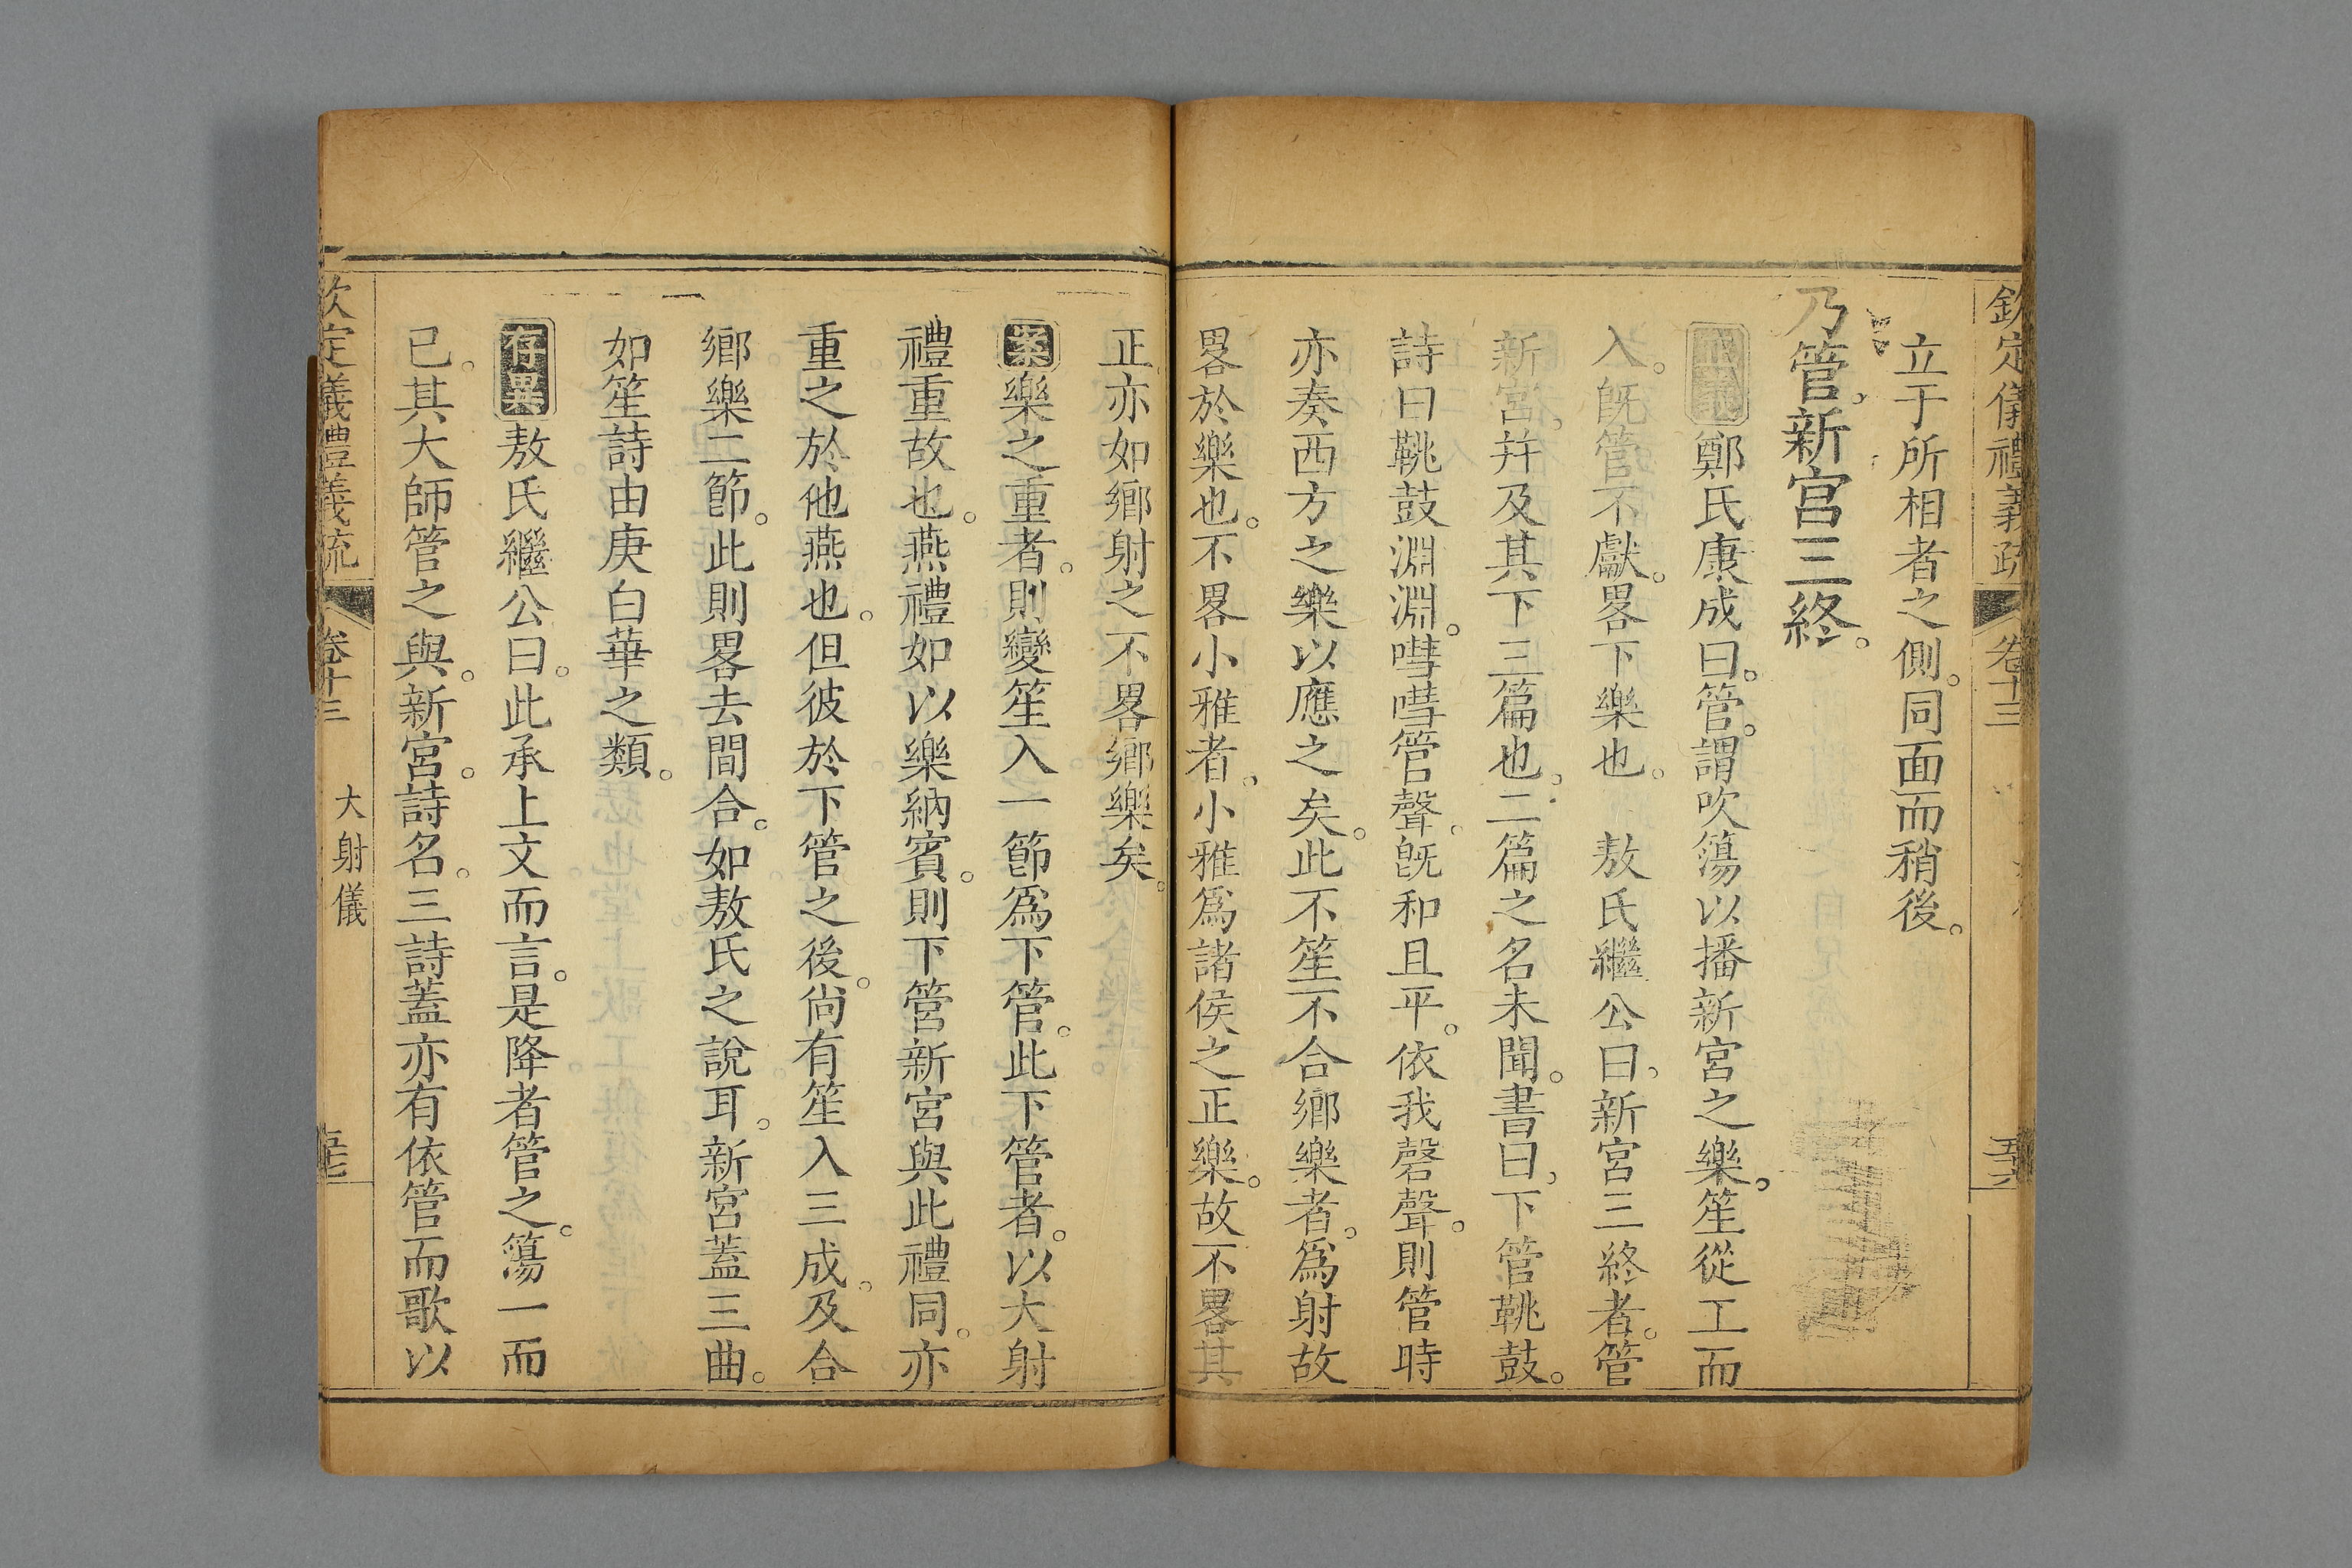 欽定儀禮義疏 卷十三
立于所相者之側。同面而稍後。
乃管。新宮三終。
正義鄭氏康成曰。管。謂吹簜以播新宮之樂。笙從工而
入。旣管不獻。畧下樂也。 敖氏繼公曰。新宮三終者。管
新宮。幷及其下三篇也。二篇之名未聞。書曰。下管鞉鼓。
詩曰鞉鼓淵淵。嘒嘒管聲。旣和且平。依我磬聲。則管時
亦奏西方之樂以應之矣。此不笙不合鄉樂者。爲射故
畧於樂也。不畧小雅者。小雅爲諸侯之正樂。故不畧其
正亦如鄉射之不畧鄉樂矣。
案樂之重者。則變笙入一節爲下管。此下管者。以大射
禮重故也。燕禮如以樂納賓。則下管新宮與此禮同。亦
重之於他燕也。但彼於下管之後。尙有笙入三成。及合
鄉樂二節。此則畧去間合。如敖氏之說耳。新宮蓋三曲。
如笙詩由庚白華之類。
存異敖氏繼公曰。此承上文而言。是降者管之。簜一而
已。其大師管之與。新宮。詩名。三詩蓋亦有依管而歌以
欽定儀禮義疏 卷十三 大射儀